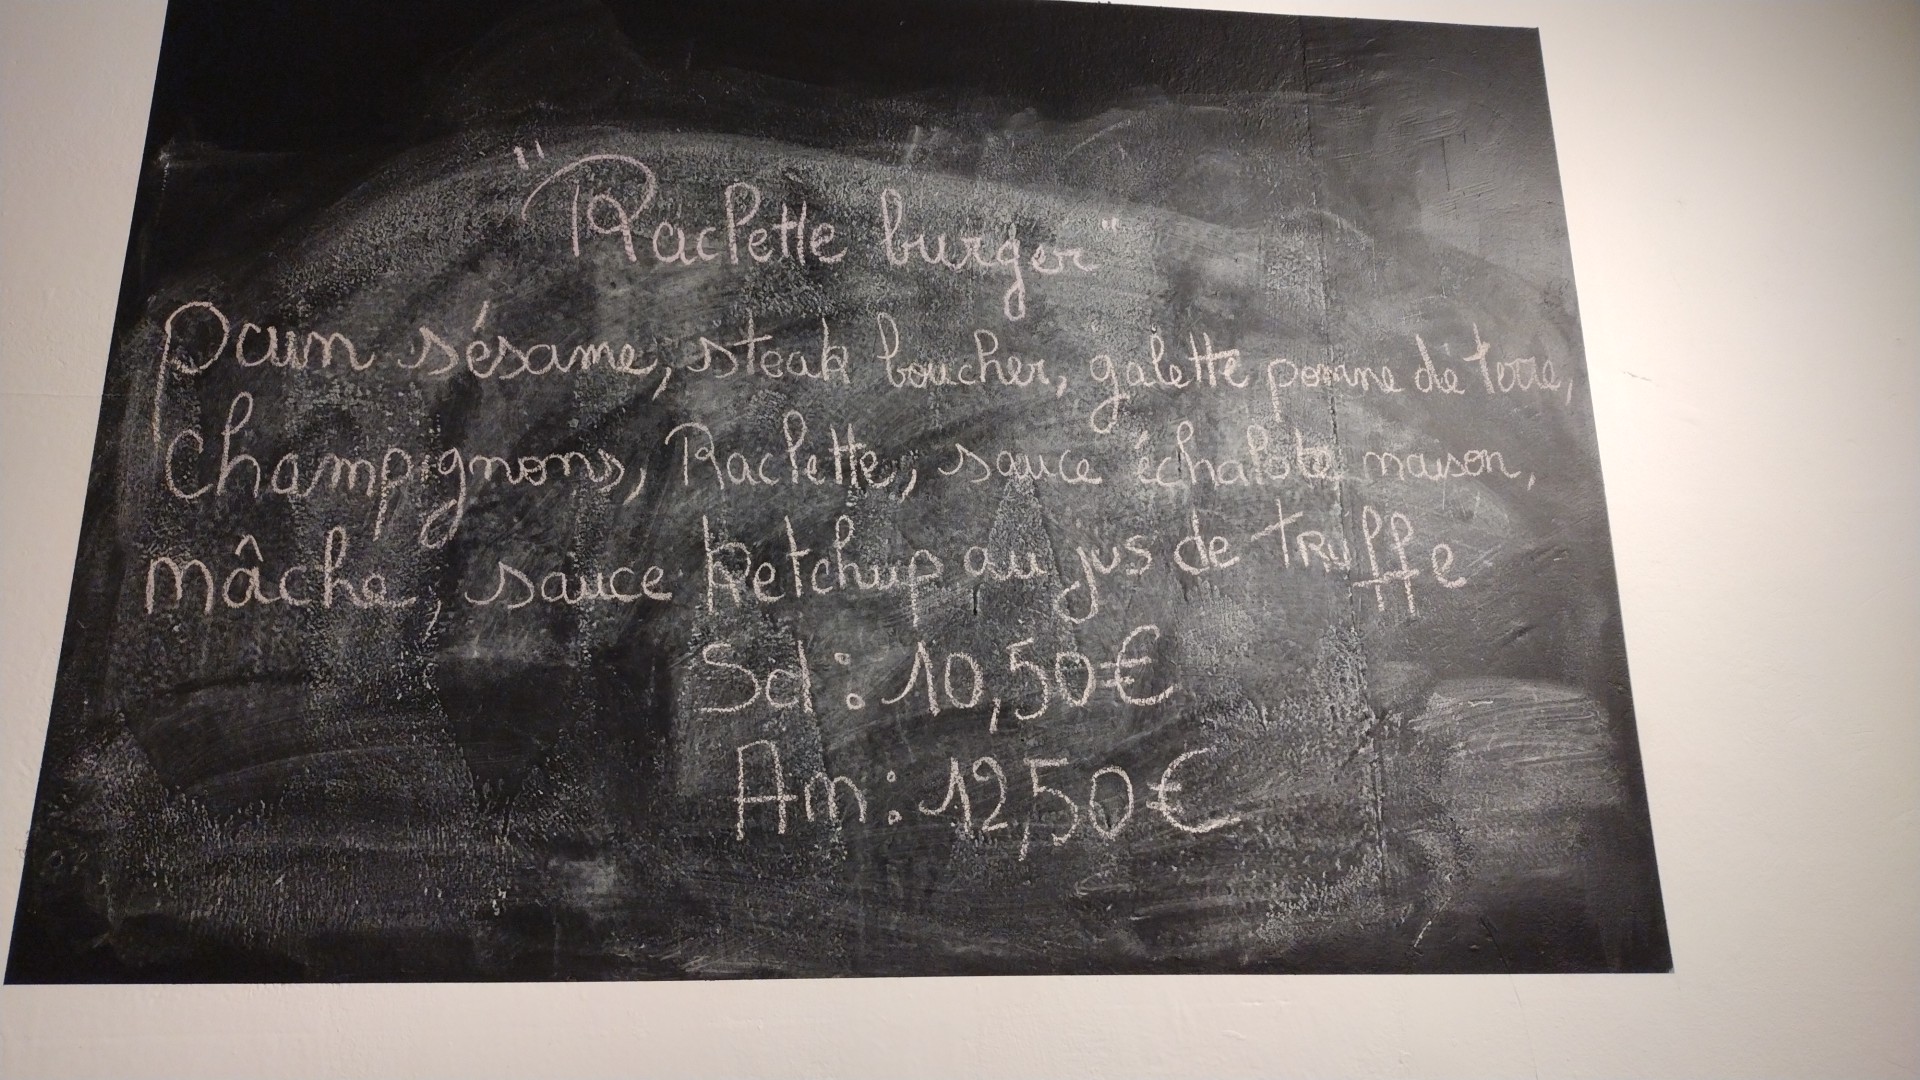 "Raclette burger"
Pain sésame, steak boucher, galette pomme de terre,
Champignons, Raclette, sauce échalote maison,
mâche, sauce ketchup au jus de truffe
Sd : 10,50€
Am : 12,50€